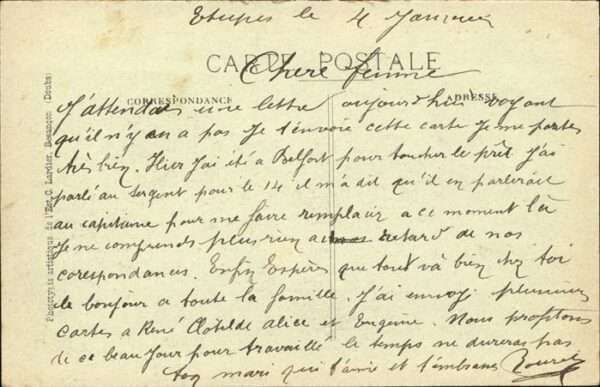 Etupes le 4 Janvier
CARTE POSTALE
Chere femme
CORRESPONDANCE
ADRESSE
J'attendais une lettre aujourd'hui voyant
qu'il n'y en a pas Je t'envoie cette carte Je me portes
très bien. Hier J'ai été a Belfort pour toucher le prêt J'ai
parlé au sergent pour le 14 il m'a dit qu'il en parlerait
au capitaine pour me faire remplacir a ce moment là
Je ne comprends plus rien a retard de nos
corespondances. Enfin Espères que tout và bien chez toi
le bonjour a toute la famille. J'ai envoyé plusieurs
cartes a René Clotilde alice et Eugenie. Nous profitons
de ce beau Jour pour travaillé le temps ne dureras pas
ton mari qui t'aime et t'embrasse
Phototypie artistique de l'Est, C. Lardier, Besançon (Doubs)